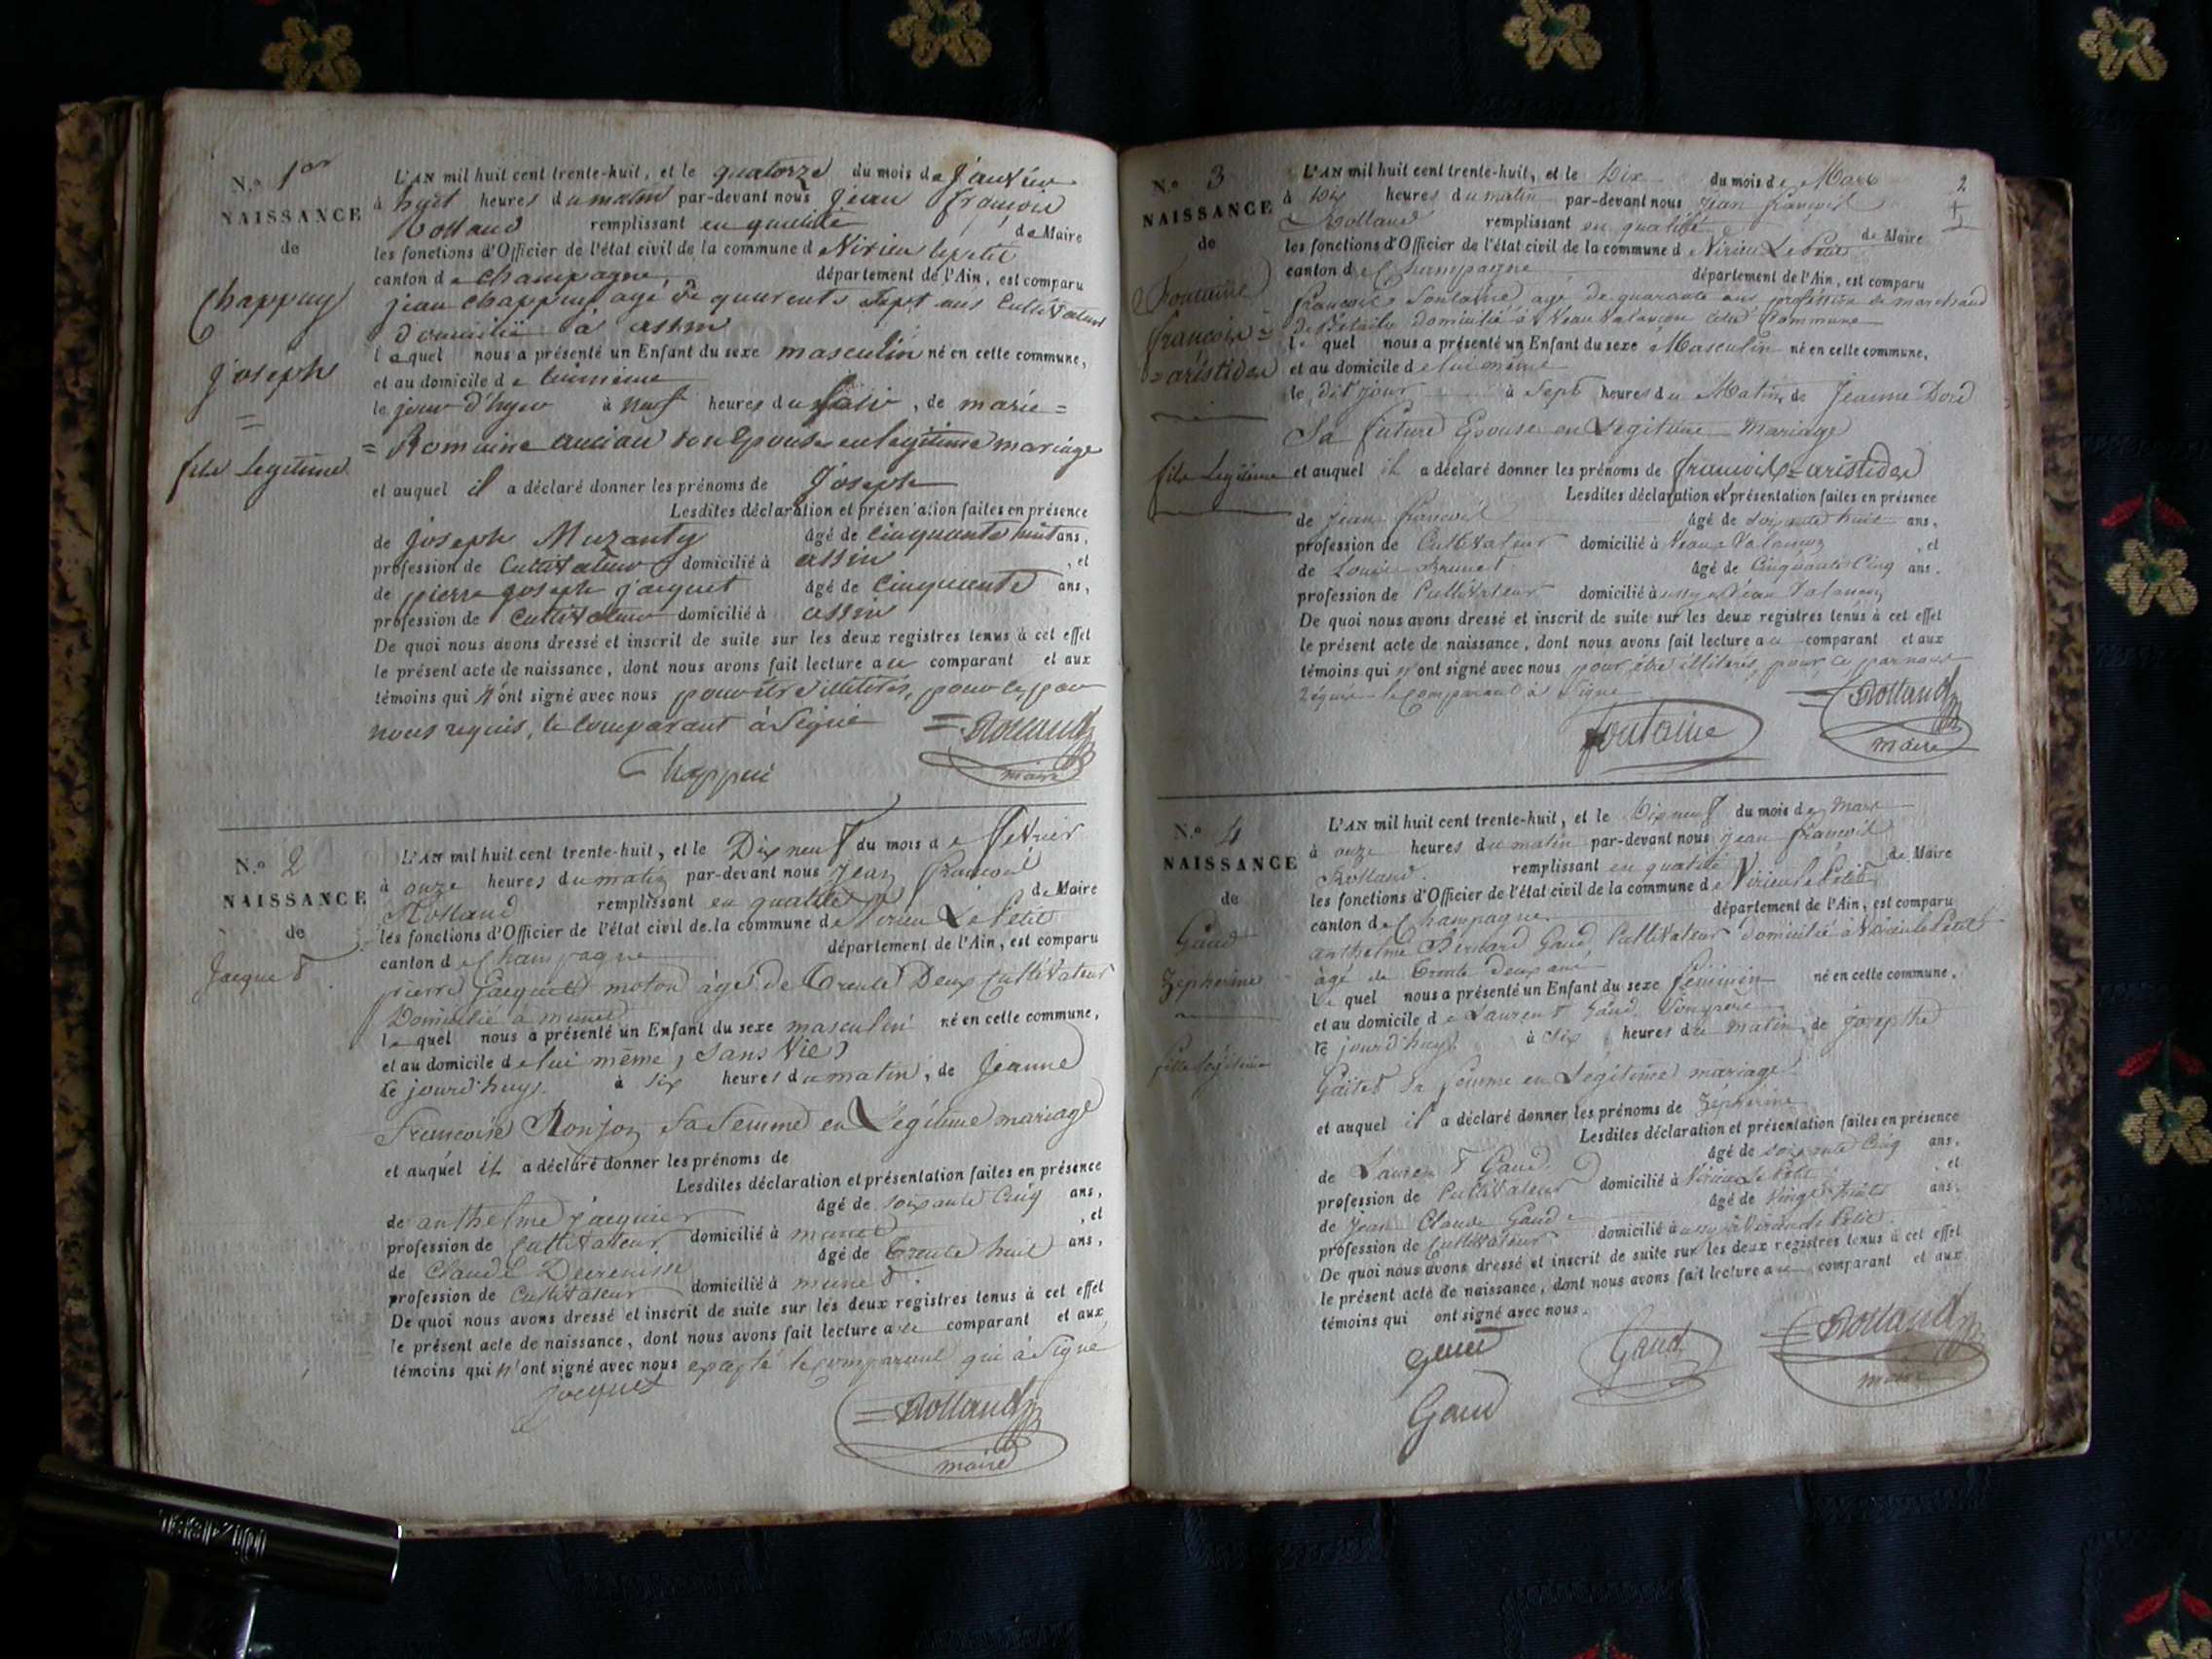 N.o 1er
NAISSANCE
de
Chappuy
Joseph
=
fils Legitime
L'AN mil huit cent trente-huit, et le quatorze du mois de Janvier
à huit heures du matin par-devant nous Jean François
Rolland remplissant en qualité de Maire
les fonctions d'Officier de l'état civil de la commune de Virieu le petit
canton de Champagne département de l'Ain, est comparu
jean chappuy agé de quarente sept ans Cultivateur
domicilié à assin
lequel nous a présenté un Enfant du sexe masculin né en cette commune,
et au domicile de luimeme
le jour d'hyer à neuf heures du soir, de marie =
= Romaine ancian son Epouse en legitime mariage
et auquel il a déclaré donner les prénoms de Joseph
Lesdites déclaration et présentation faites en présence
de Joseph Muzanty âgé de cinquante huit ans,
profession de Cultivateur domicilié à assin , et
de pierre joseph jacquet âgé de Cinquente ans,
profession de Cultivateur domicilié à assin
De quoi nous avons dressé et inscrit de suite sur les deux registres tenus à cet effet
le présent acte de naissance, dont nous avons fait lecture au comparant et aux
témoins qui n'ont signé avec nous pour être illitérés, pour ce par
nous requis, le comparant à Signé
= Rolland
Chappui
maire
N.o 2
NAISSANCE
de
Jacquet
L'AN mil huit cent trente-huit, et le Dix neuf du mois de fevrier
à onze heures du matin par-devant nous Jean François
Rolland remplissant en qualité de Maire
les fonctions d'Officier de l'état civil de la commune de Virieu Le Petit
canton de Champagne département de l'Ain, est comparu
pierre Jacquet moton âgé de Trente Deux Cultivateur
Domicilié a munet
lequel nous a présenté un Enfant du sexe masculin né en cette commune,
et au domicile de lui même, sans vie
le jourd'huy à six heures du matin, de Jeanne
Francoise Ronjon Sa femme en Légitime mariage
et auquel il a déclaré donner les prénoms de
Lesdites déclaration et présentation faites en présence
de anthelme jacquier âgé de soixante Cinq ans,
profession de Cultivateur domicilié à munet , et
de Claude âgé de Trente huit ans,
profession de Cultivateur domicilié à munet.
De quoi nous avons dressé et inscrit de suite sur les deux registres tenus à cet effet
le présent acte de naissance, dont nous avons fait lecture au comparant et aux
témoins qui n'ont signé avec nous excepté le comparant qui à Signé
jacquet
= Rolland
maire
2
N.o 3
NAISSANCE
de
Fontaine
françois =
= aristide
fils Legitime
L'AN mil huit cent trente-huit, et le Dix du mois de Mars
à Dix heures du matin par-devant nous Jean françois
Rolland remplissant en qualité de Maire
les fonctions d'Officier de l'état civil de la commune de Virieu Le Petit
canton de Champagne département de l'Ain, est comparu
françois Fontaine agé de quarante ans profession de marchand
de Détails domicilié à Veau Valancon Commune
lequel nous a présenté un Enfant du sexe Masculin né en cette commune,
et au domicile de lui même
le dit jour à Sept heures du Matin de Jeanne
Sa future Epouse en Legitime Mariage
et auquel il a déclaré donner les prénoms de françois = aristide
Lesdites déclaration et présentation faites en présence
de Jean françois âgé de soixante huit ans,
profession de Cultivateur domicilié à Veau , et
de Louis Brunet âgé de Cinquante Cinq ans.
profession de Cultivateur domicilié à
De quoi nous avons dressé et inscrit de suite sur les deux registres tenus à cet effet
le présent acte de naissance, dont nous avons fait lecture au comparant et aux
témoins qui n'ont signé avec nous pour être illitérés, pour ce par nous
Réquis le comparant à Signé
= Rolland
fontaine
maire
N.o 4
NAISSANCE
de
Gaud
Zéphérine
fille légitime
L'AN mil huit cent trente-huit, et le Dix neuf du mois de Mars
à onze heures du matin par-devant nous Jean françois
Rolland. remplissant en qualité de Maire
les fonctions d'Officier de l'état civil de la commune de Virieu le Petit
canton de Champagne département de l'Ain, est comparu
anthelme Bernard Gaud Cultivateur domicilié à Virieu le Petit
àgé de Trente Deux ans
lequel nous a présenté un Enfant du sexe féminin né en cette commune,
et au domicile de Laurent Gaud Son pere
le jourd'huy à six heures du matin, de josephe
sa femme en Légitime mariage
et auquel il a déclaré donner les prénoms de Zépherine
Lesdites déclaration et présentation faites en présence
de Laurent Gaud âgé de soixante Cinq ans,
profession de Cultivateur domicilié à Virieu Le Petit , et
de Jean Claude Gaud âgé de Vingt huit ans,
profession de Cultivateur domicilié à Virieu le Petit.
De quoi nous avons dressé et inscrit de suite sur les deux registres tenus à cet effet
le présent acte de naissance, dont nous avons fait lecture au comparant et aux
témoins qui ont signé avec nous.
gaud
Gaud
= Rolland
maire
Gaud